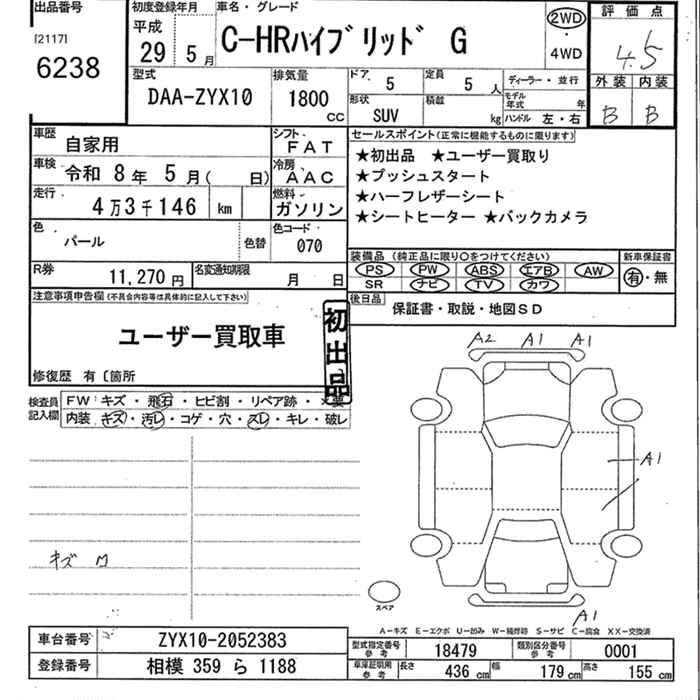 出品番号
[2117]
6238
初度登録年月
平成
29 5 月
車名・グレード
C-HRハイブリッド G
2WD
・
4WD
評価点
4.5
外装 内装
B B
型式
DAA-ZYX10
排気量
1800 CC
ドア 5
定員 5 人
形状 SUV
積載 kg
ディーラー・並行
モデル年式 年
ハンドル 左・右
車歴 自家用
車検 令和 8 年 5 月( 日)
走行 4万3千146 km
色 パール
色替
シフト FAT
冷房 AAC
燃料 ガソリン
色コード 070
R券 11,270円
名変通知期限 月 日
セールスポイント(正常に機能するものに限ります)
★初出品 ★ユーザー買取り
★プッシュスタート
★ハーフレザーシート
★シートヒーター ★バックカメラ
装備品 (純正品に限り○をつけてください)
PS PW ABS エアB AW
SR ナビ TV カワ
新車保証書
有・無
後日品 保証書・取説・地図SD
注意事項申告欄(不具合内容等は具体的に記入して下さい)
ユーザー買取車
初出品
修復歴 有 〔箇所
検査員記入欄
FW キズ・飛石・ヒビ割・リペア跡・×要
内装 キズ・汚レ・コゲ・穴・スレ・キレ・破レ
キズ
A2 A1 A1
A1
A1
スペア
A-キズ E-エクボ U-凹み W-補修跡 S-サビ C-腐食 XX-交換済
車台番号 ZYX10-2052383
登録番号 相模 359 ら 1188
型式指定番号 参考 18479
類別区分番号 参考 0001
車庫証明用 参考 長さ 436 cm 幅 179 cm 高さ 155 cm